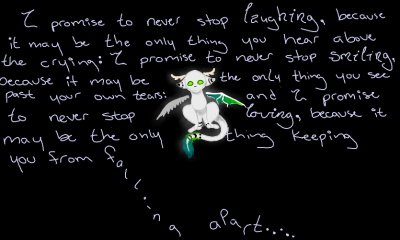 I promise to never stop laughing, because
it may be the only thing you hear above
the crying: I promise to never stop smiling,
because it may be the only thing you see
past your own tears: and I promise
to never stop loving, because it
may be the only thing keeping
you from falling apart.....